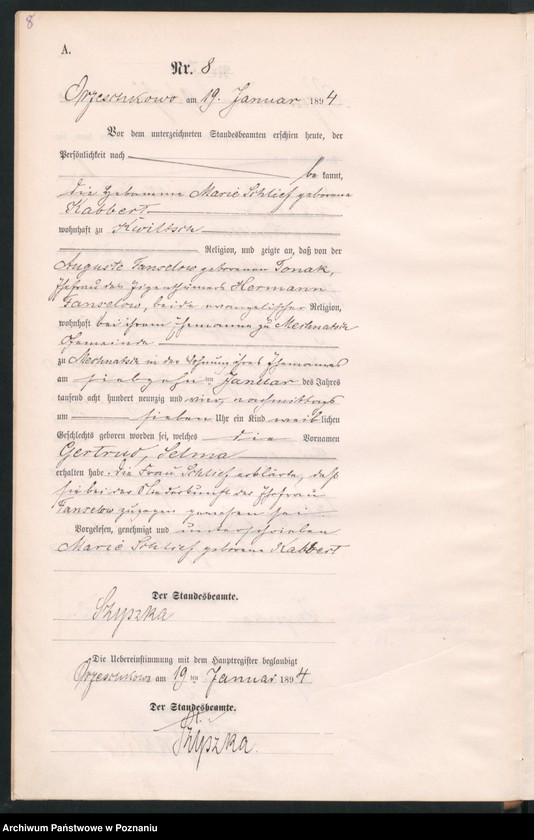 8
A.
Nr. 8
Orzeschkowo am 19. Januar 1894
Vor dem unterzeichneten Standesbeamten erschien heute, der
Persönlichkeit nach
be kannt,
die Hebamme Marie Schlief geborene
Kabbert
wohnhaft zu Kwiltsch
Religion, und zeigte an, daß von der
Auguste Tanselow geborenen Tonak,
Ehefrau des Eigenthümers Hermann
Tanselow, beide evangelischer Religion,
wohnhaft bei ihrem Ehemanne zu Mechnatsch
Gemeinde
zu Mechnatsch in der Wohnung ihres Ehemannes
am siebzehnten Januar des Jahres
tausend acht hundert neunzig und vier, nachmittags
um sieben Uhr ein Kind weiblichen
Geschlechts geboren worden sei, welches die Vornamen
Gertrud, Selma
erhalten habe. Die Frau Schlief erklärte, daß
sie bei der Niederkunft der Ehefrau
Tanselow zugegen gewesen sei
Vorgelesen, genehmigt und unterschrieben
Marie Schlief geborene Kabbert
Der Standesbeamte.
Szyszka
Die Uebereinstimmung mit dem Hauptregister beglaubigt
Orzeschkowo am 19ten Januar 1894
Der Standesbeamte.
Szyszka.
Archiwum Państwowe w Poznaniu